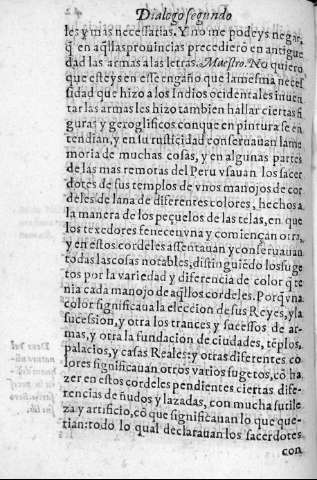 Dialogo segundo
les y mas necessarias. Y no me podeys negar,
q̃ en aq̃llas prouincias precedierõ en antigue
dad las armas a las letras. Maestro. No quiero
que esteys en esse engaño que la mesma neces
sidad que hizo a los Indios ocidentales inuen
tar las armas les hizo tambien hallar ciertas fi
guras y geroglificos con que en pintura se en
tendian, y en su rusticidad conseruauan la me
moria de muchas cosas, y en algunas partes
de las mas remotas del Peru vsauan los sacer
dotes de sus templos de vnos manojos de cor
deles de lana de diferentes colores, hechos a
la manera de los peçuelos de las telas, en que
los texedores fenecen vna y comiençan otra,
y en estos cordeles assentauan y conseruauan
todas las cosas notables, distinguiẽdo los suge
tos por la variedad y diferencia de color q̃ te
nia cada manojo de aq̃llos cordeles. Porq̃ vna
color significaua la eleccion de sus Reyes, y la
sucession, y otra los trances y sucessos de ar-
mas, y otra la fundacion de ciudades, tẽplos,
palacios, y casas Reales: y otras diferentes co
lores significauan otros varios sugetos, cõ ha
zer en estos cordeles pendientes ciertas dife-
rencias de ñudos y lazadas, con mucha sutile
za y artificio, cõ que significauan lo que que-
rian: todo lo qual declarauan los sacerdotes
con